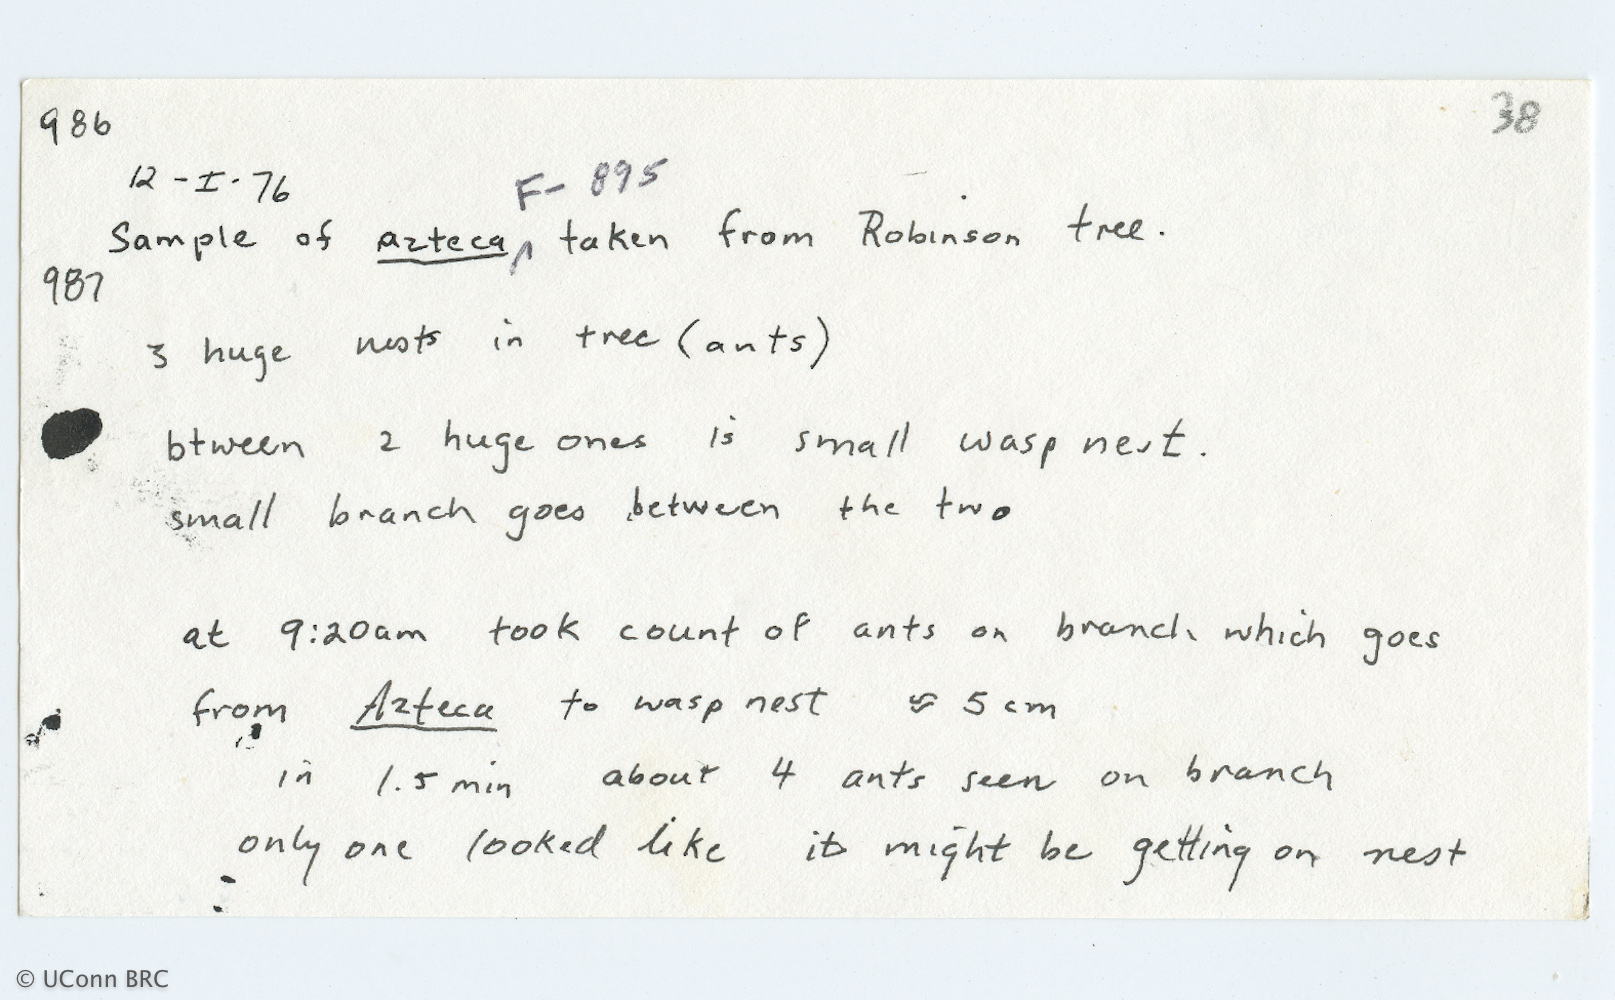 986
38
12-I-76
F-895
Sample of azteca ^ taken from Robinson tree.
987
3 huge nests in tree (ants)
btween 2 huge ones is small wasp nest.
small branch goes between the two
at 9:20am took count of ants on branch which goes
from Azteca to wasp nest ≈ 5 cm
in 1.5 min about 4 ants seen on branch
only one looked like it might be getting on nest
© UConn BRC